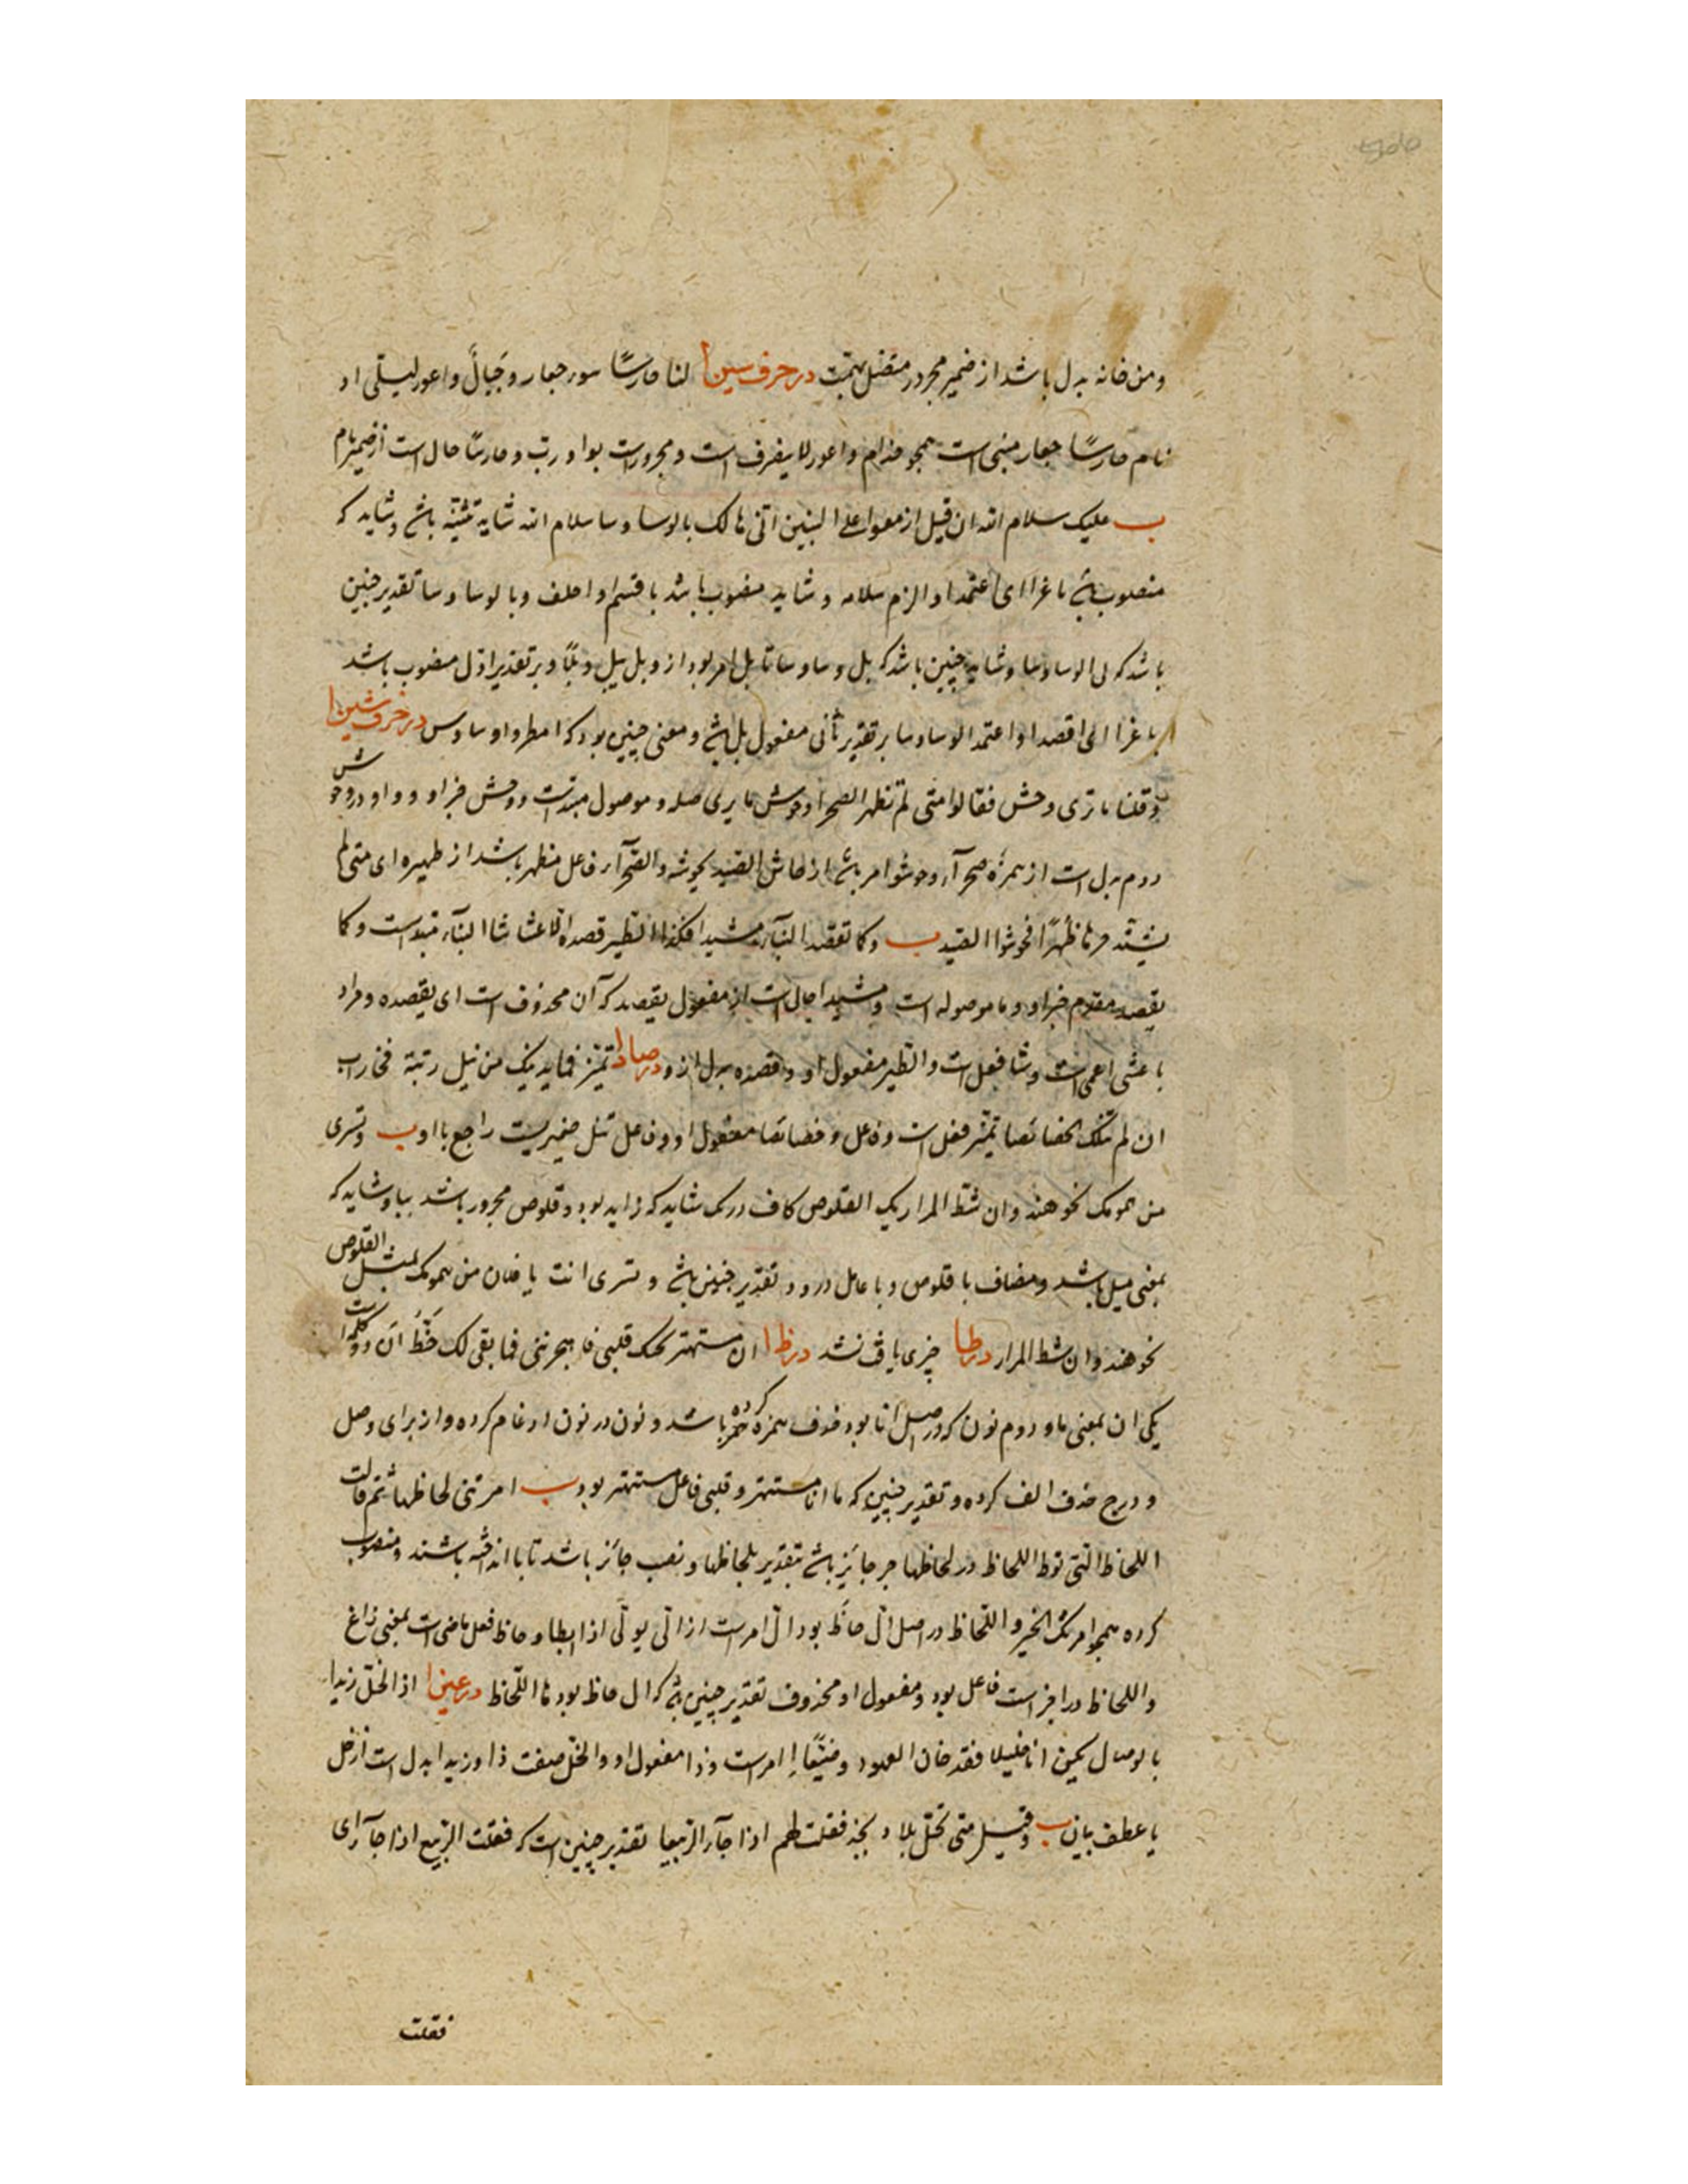 ومن خانه بدل باشد از ضمیر مجرور متصل بهمت در حرف سین ا لنا حارسًا سور جعار وَجَیالً واعور لیتلی او
نام حارسًا جعار مبنی است همجو حذام واعور لا ینصرف است ومجرورست بواو رب و حارسًا حال است از ضمیر نام
ب علیک سلام الله ان قیل ازمعوا علی البین اتنی مالک بالوسا وسا سلام الله شاید تثنیه باشد وشاید که
منصوب باشد باغرا ای اعتمد او الزم سلامه و شاید منصوب باشد باقسم او احلف و بالوسا وسا تقدیر چنین
باشد که لی الوساوسا وشاید چنین باشد که بل وساوسا تا بل امر بود از وبل یبل وبلًا و بر تقدیر اول منصوب باشد
باغرا ای اقصد او اعتمد الوساوسا بر تقدیر ثانی مفعول بل باشد ومعنی چنین بود که امطر وا وساوس در حرف شین ا
وقلنا ما تری وحش فقالوا متی لم تظهر الصحرا وحوش ما یری صله و موصول مبتداست ووحش خبر او وواو در وحوش
دوم بدل است از همزهٔ صحرآء وحوشوا امر باشد از حاش الصید یحوشه والصحرآء فاعل تظهر باشد از ظهیره ای متی لم
یشتد حرها ظهرًا فحوشوا الصید ب وکا تقصد البنآء مشیدا فکذا الطیر قصده الاعشاشا البنآء مبتداست وکا
یقصد مقدم خبر او وما موصوله است ومشیدا حال است از مفعول یقصد که آن محذوف است ای یقصده ومراد
باعشی اعمی است وشا فعل است والطیر مفعول او وقصده بدل از و در صاد ا تمیز فما یدنیک من نیل رتبة فخارب
ان لم تنک الخصائصا تمیز فعل است وفاعل وخصائصا مفعول او وفاعل تنل ضمیریست راجع با او ب وتسری
من همومک نحو هند وان شط المرار بک القلوص کاف در بک شاید که زاید بود وقلوص مجرور باشد ببا وشاید که
بمعنی مثل باشد ومضاف با قلوص وبا عامل در و تقدیر چنین باشد وتسری انت یا فلان من همومک بمثل القلوص
نحو هند وان شط المرار در طا چیزی یافت نشد در ظا ا ان مستهتر بحبک قلبی فاهجرتنی فما بقی لک حَظُّ ان دو کلمه است
یکی ان بمعنی ما و دوم نون که در اصل انا بود حذف همزه کرده باشد ونون در نون ادغام کرده واز برای وصل
و درج حذف الف کرده وتقدیر چنین که ما انا مستهتر وقلبی فاعل مستهتر بود ب امرتنی لحاظها ثم قالت
اللحاظ التی توط اللحاظ در لحاظها جر جایز باشد بتقدیر بلحاظها ونصب جائز باشد تا با انداخته باشند ومنصوب
کرده همجو امرتک الخیر و اللحاظ در اصل ال حاظَ بود ال امرست از الی یولی اذا ابطا وحاظ فعل ماضی است بمعنی زاغ
واللحاظ در اخر است فاعل بود ومفعول او محذوف تقدیر چنین باشد که ال حاظ بود ما اللحاظ در عین ا اذا الخل زیدا
بالوصال یحین انا خلیلا فقد خان العهود وضیّعا إ امرست وذا مفعول او والخل صفت ذا وزیدا بدل است از خل
یا عطف بیان ب وقیل متی تحل بلاد نجد فقلت لهم اذا جآء الربیعا تقدیر چنین است که فقلت الربیع اذا جآء ای
فقلت